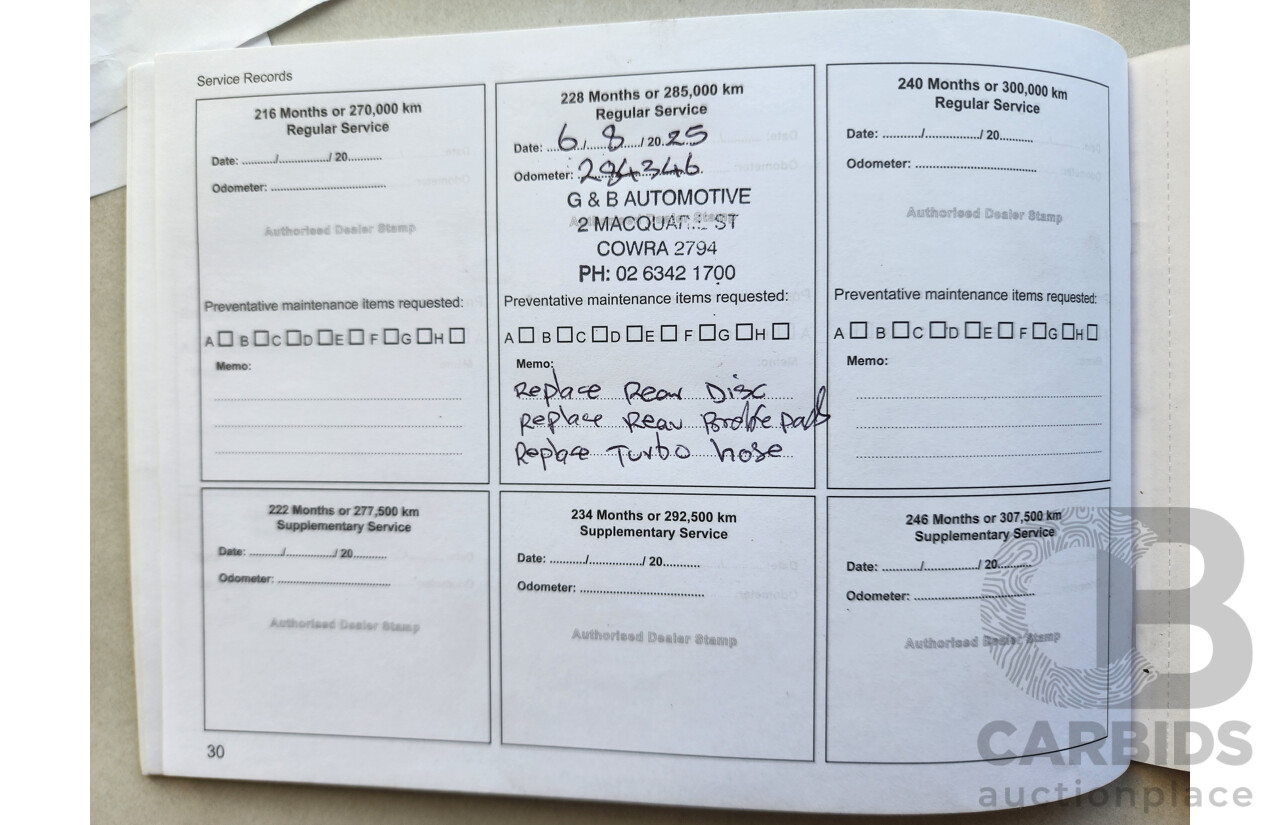 Service Records
216 Months or 270,000 km
Regular Service
Date: ........../................/ 20..........
Odometer: ..................................
Authorised Dealer Stamp
Preventative maintenance items requested:
A □ B □ C □ D □ E □ F □ G □ H □
Memo:
228 Months or 285,000 km
Regular Service
Date: ....6./....8..../ 20.25
Odometer: 284346
G & B AUTOMOTIVE
Authorised Dealer Stamp
2 MACQUARIE ST
COWRA 2794
PH: 02 6342 1700
Preventative maintenance items requested:
A □ B □ C □ D □ E □ F □ G □ H □
Memo:
Replace Rear Disc
Replace Rear Brake pads
Replace Turbo hose
240 Months or 300,000 km
Regular Service
Date: ........../................/ 20..........
Odometer: ..................................
Authorised Dealer Stamp
Preventative maintenance items requested:
A □ B □ C □ D □ E □ F □ G □ H □
Memo:
222 Months or 277,500 km
Supplementary Service
Date: ........../................/ 20..........
Odometer: ..................................
Authorised Dealer Stamp
234 Months or 292,500 km
Supplementary Service
Date: ........../................/ 20..........
Odometer: ..................................
Authorised Dealer Stamp
246 Months or 307,500 km
Supplementary Service
Date: ........../................/ 20..........
Odometer: ..................................
Authorised Dealer Stamp
30
CB
CARBIDS
auctionplace